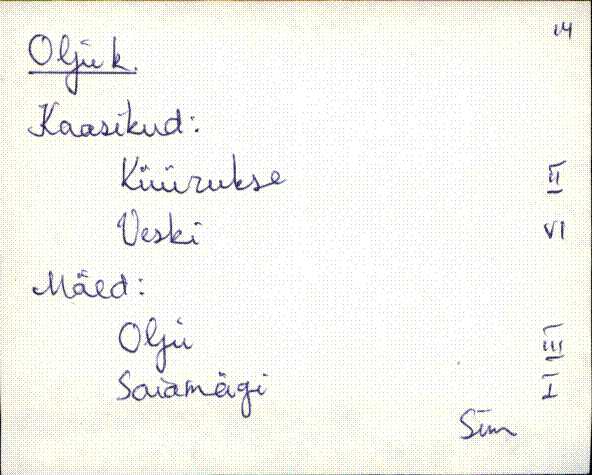 14
Oljük.
Kaasikud:
Küürukse II
Veski VI
Mäed:
Oljü III
Saiamägi I
Sim